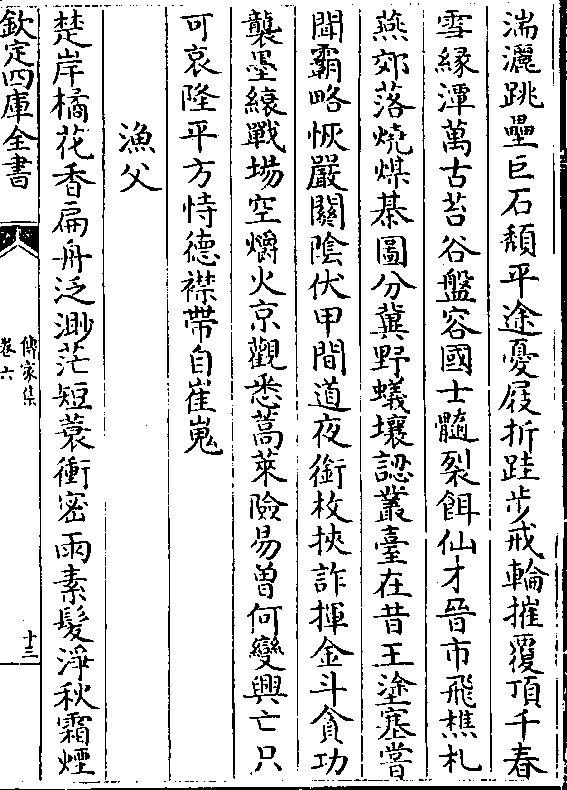 湍灑跳壘巨石頽平途憂屐折跬步戒輪摧覆頂千春
雪緣潭萬古苔谷盤容國士髓裂餌仙才晉市飛樵札
燕郊落燒煤棊圖分冀野蟻壤認叢臺在昔王塗塞嘗
聞霸略恢嚴關隂伏甲間道夜銜枚挾詐揮金斗貪功
襲墨縗戰場空爝火京觀悉蒿萊險易曽何變興亡只
可哀隆平方恃德襟帶自崔嵬
漁父
楚岸橘花香扁舟泛渺茫短蓑衝密雨素髮淨秋霜煙
欽定四庫全書
傳家集
卷六
十三